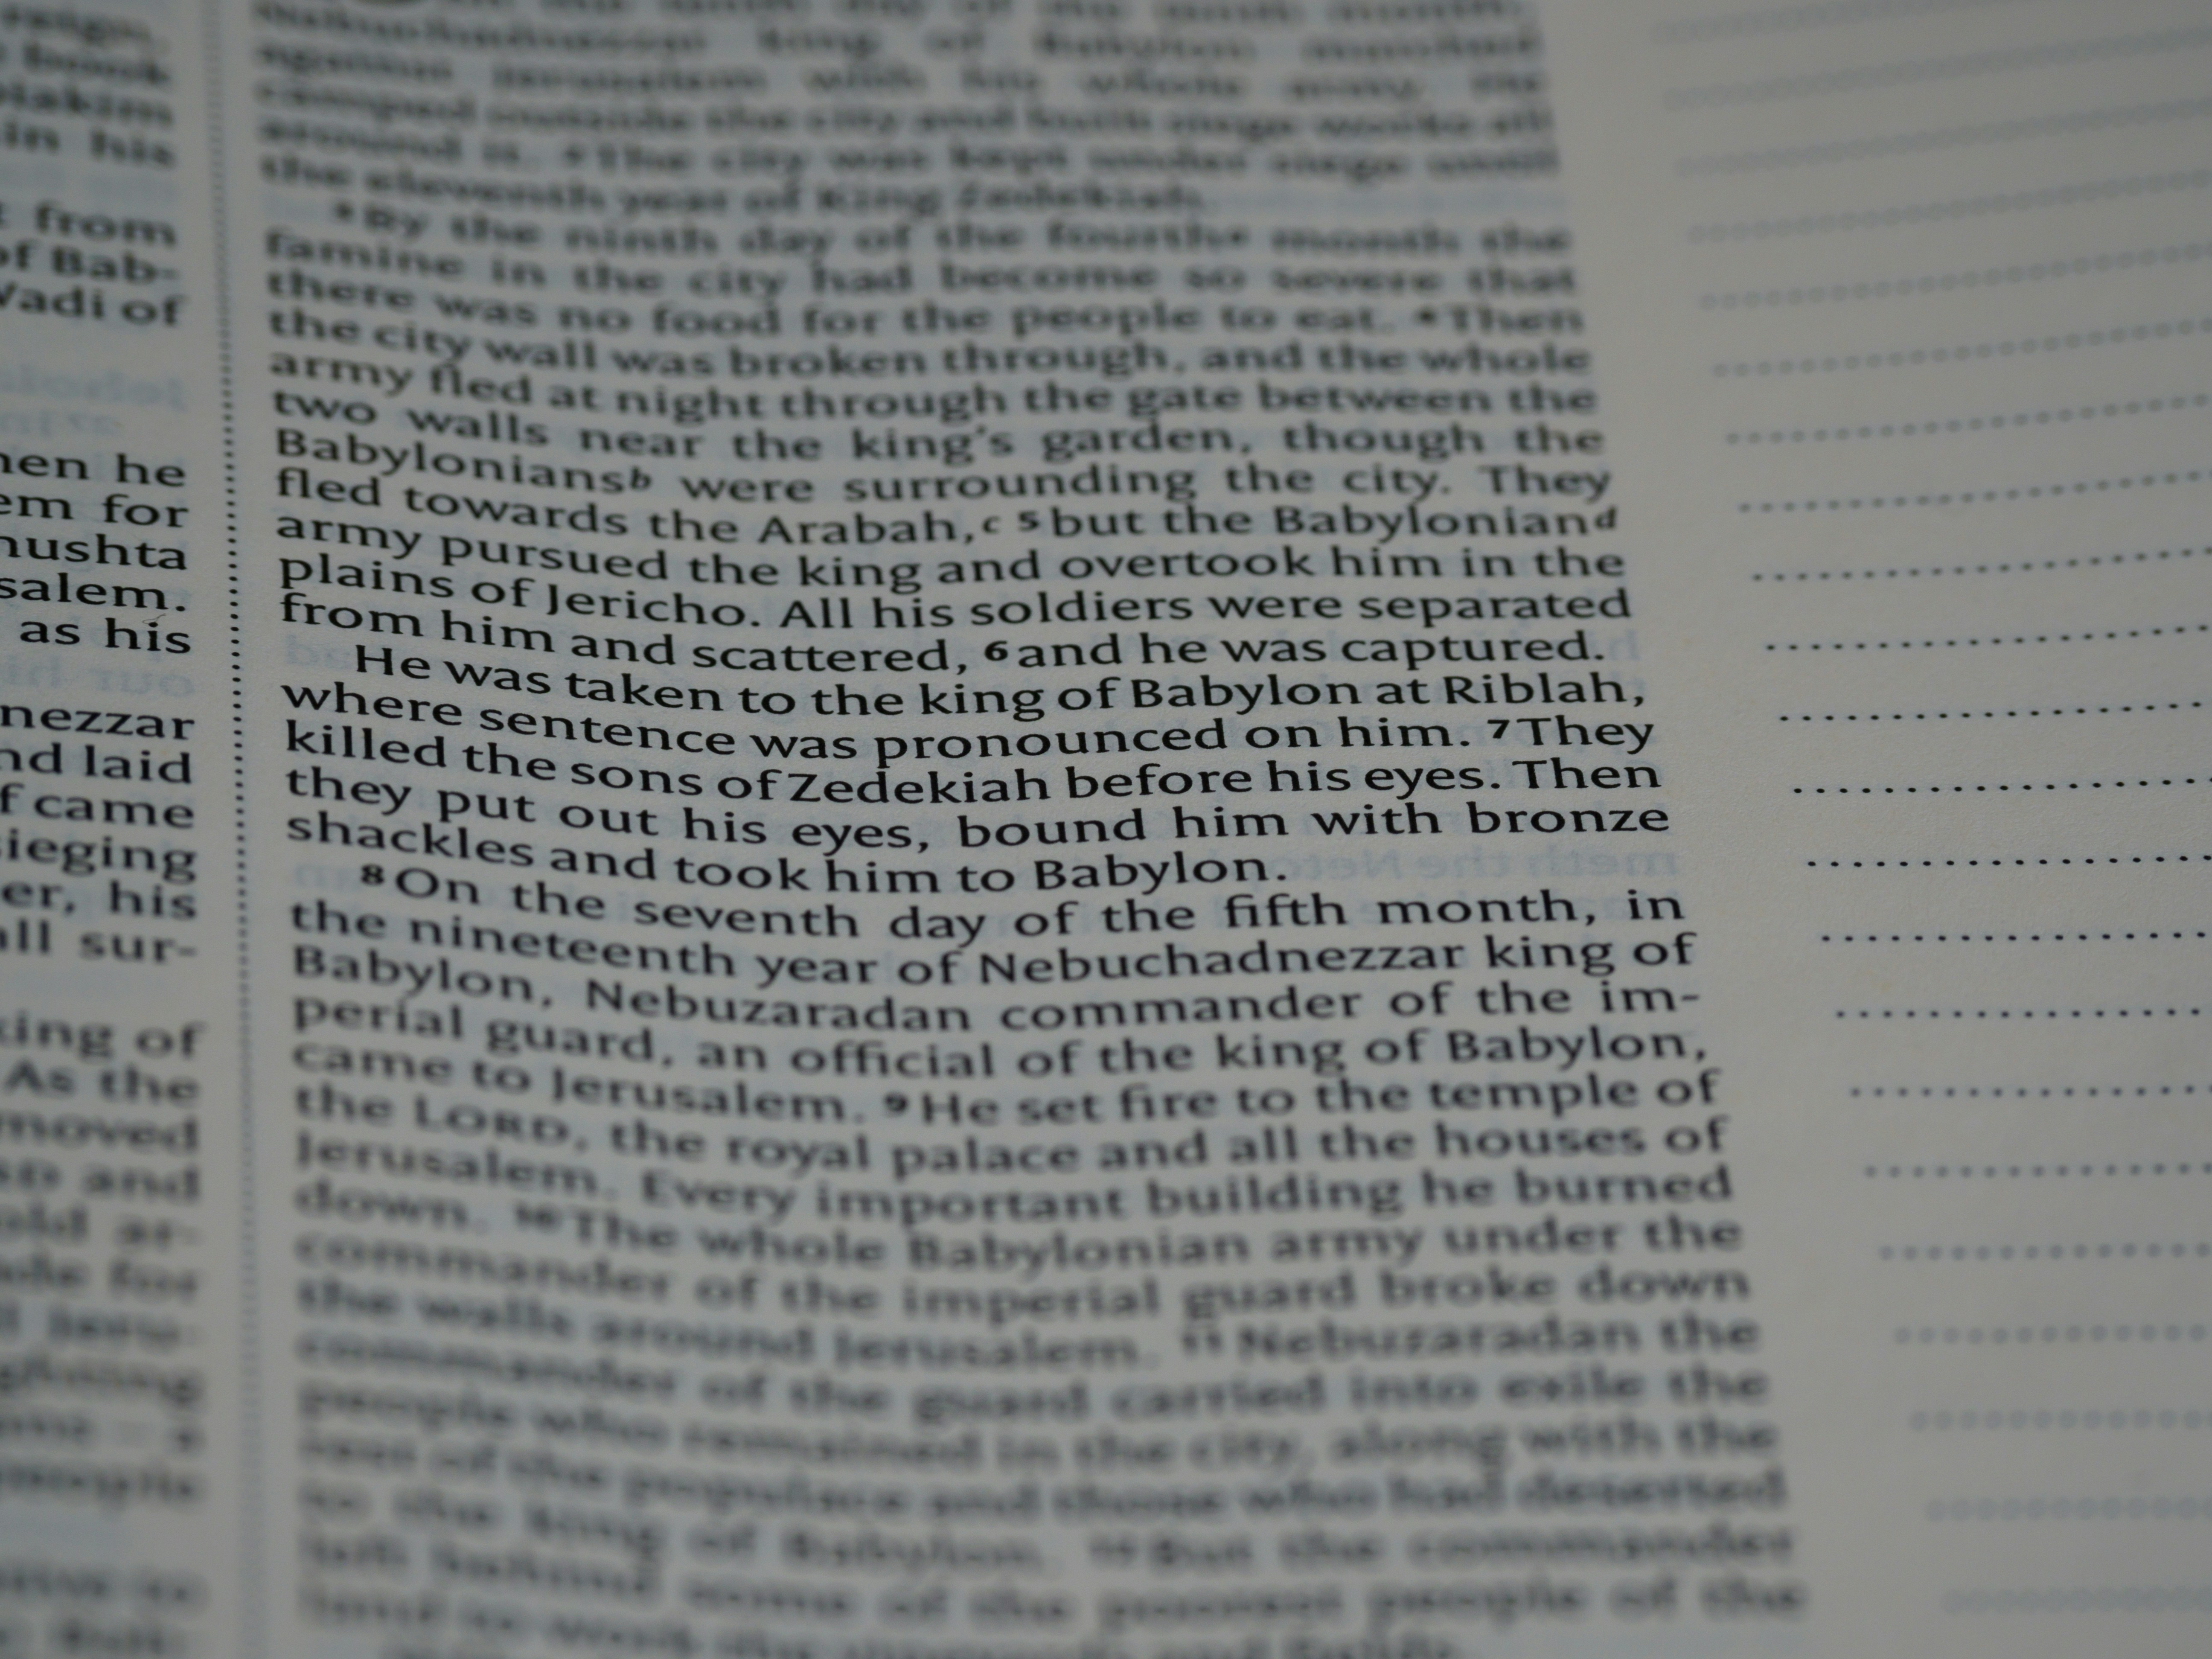 reign,
in his
from
of Bab-
Wadi of
hen he
em for
hushta
salem.
as his
nezzar
nd laid
f came
sieging
er, his
all sur-
king of
As the
moved
and
around it. The city was kept under siege until
the eleventh year of King Zedekiah.
³By the ninth day of the fourth month the
famine in the city had become so severe that
there was no food for the people to eat. ⁴Then
the city wall was broken through, and the whole
army fled at night through the gate between the
two walls near the king's garden, though the
Babyloniansᵇ were surrounding the city. They
fled towards the Arabah,ᶜ ⁵but the Babylonianᵈ
army pursued the king and overtook him in the
plains of Jericho. All his soldiers were separated
from him and scattered, ⁶and he was captured.
He was taken to the king of Babylon at Riblah,
where sentence was pronounced on him. ⁷They
killed the sons of Zedekiah before his eyes. Then
they put out his eyes, bound him with bronze
shackles and took him to Babylon.
⁸On the seventh day of the fifth month, in
the nineteenth year of Nebuchadnezzar king of
Babylon, Nebuzaradan commander of the im-
perial guard, an official of the king of Babylon,
came to Jerusalem. ⁹He set fire to the temple of
the LORD, the royal palace and all the houses of
Jerusalem. Every important building he burned
down. ¹⁰The whole Babylonian army under the
commander of the imperial guard broke down
the walls around Jerusalem. ¹¹Nebuzaradan the
commander of the guard carried into exile the
people who remained in the city, along with the
rest of the populace and those who had deserted
to the king of Babylon. ¹²But the commander
left behind some of the poorest people of the